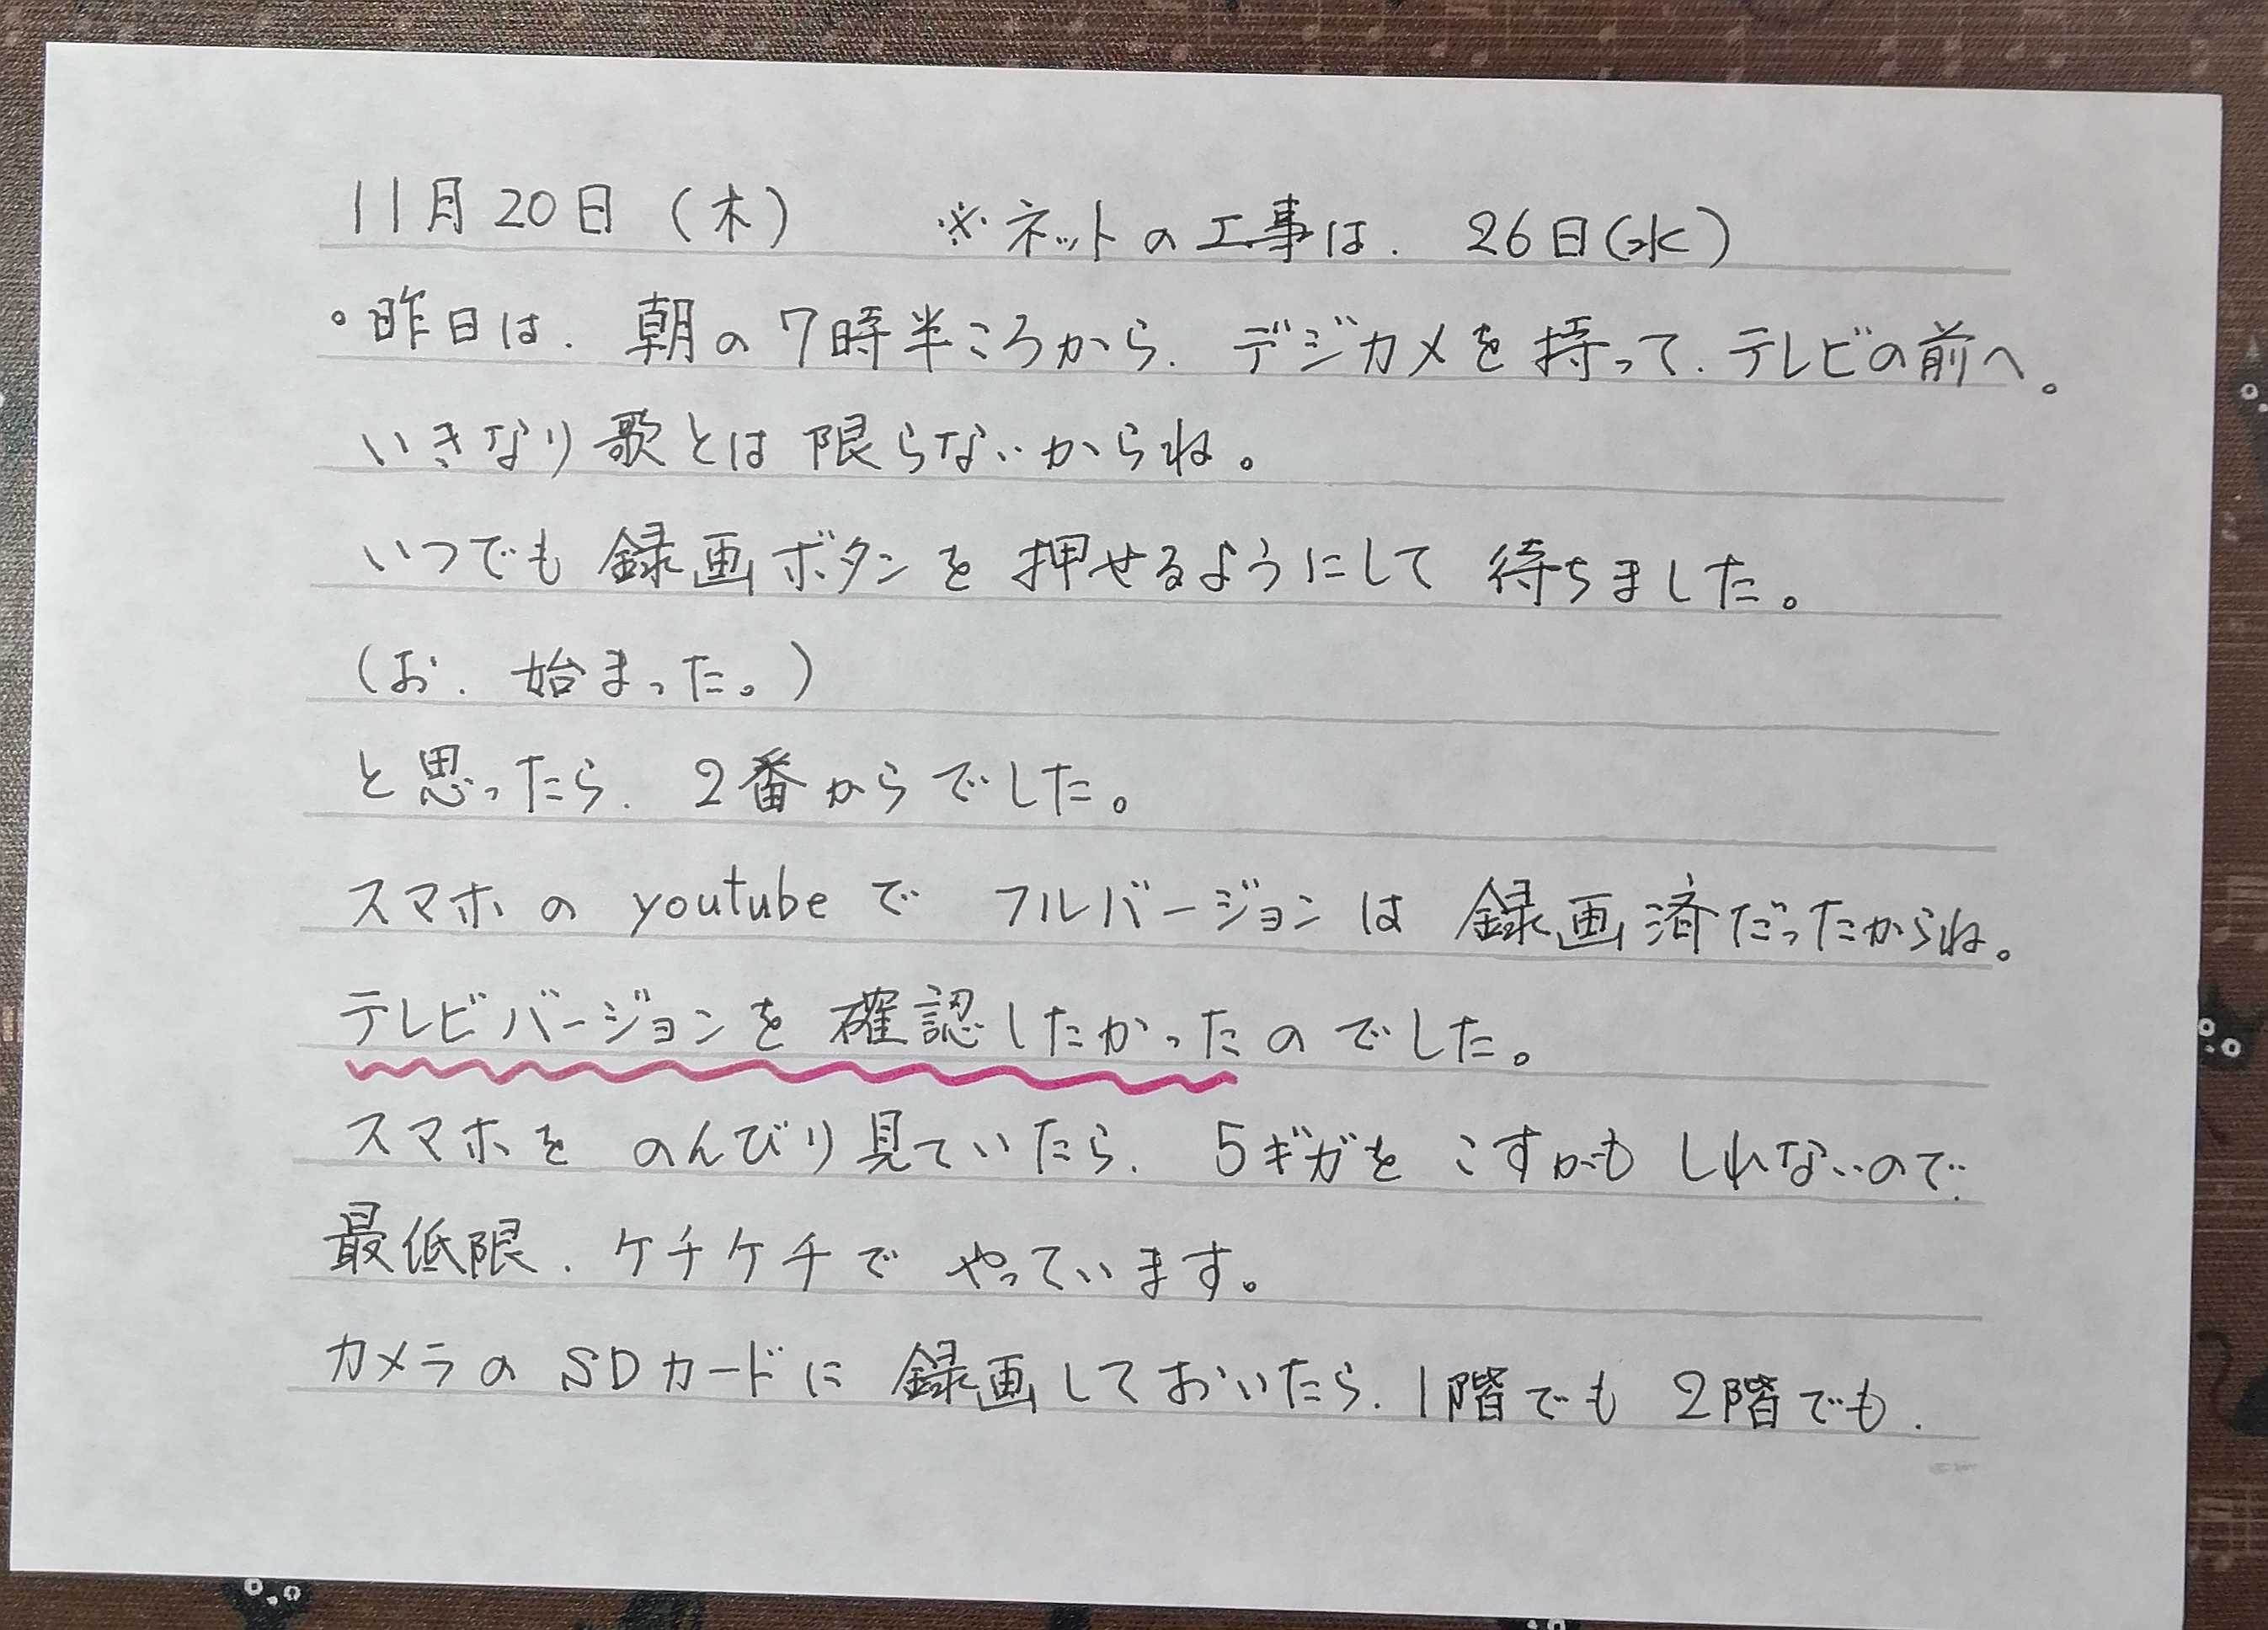 11月20日(木) ※ネットの工事は、26日(水)
。昨日は、朝の7時半ころから、デジカメを持って、テレビの前へ。
いきなり歌とは限らないからね。
いつでも録画ボタンを押せるようにして待ちました。
(お、始まった。)
と思ったら、2番からでした。
スマホのyoutubeでフルバージョンは録画済だったからね。
テレビバージョンを確認したかったのでした。
スマホをのんびり見ていたら、5ギガをこすかもしれないので、
最低限、ケチケチでやっています。
カメラのSDカードに録画しておいたら、1階でも2階でも、